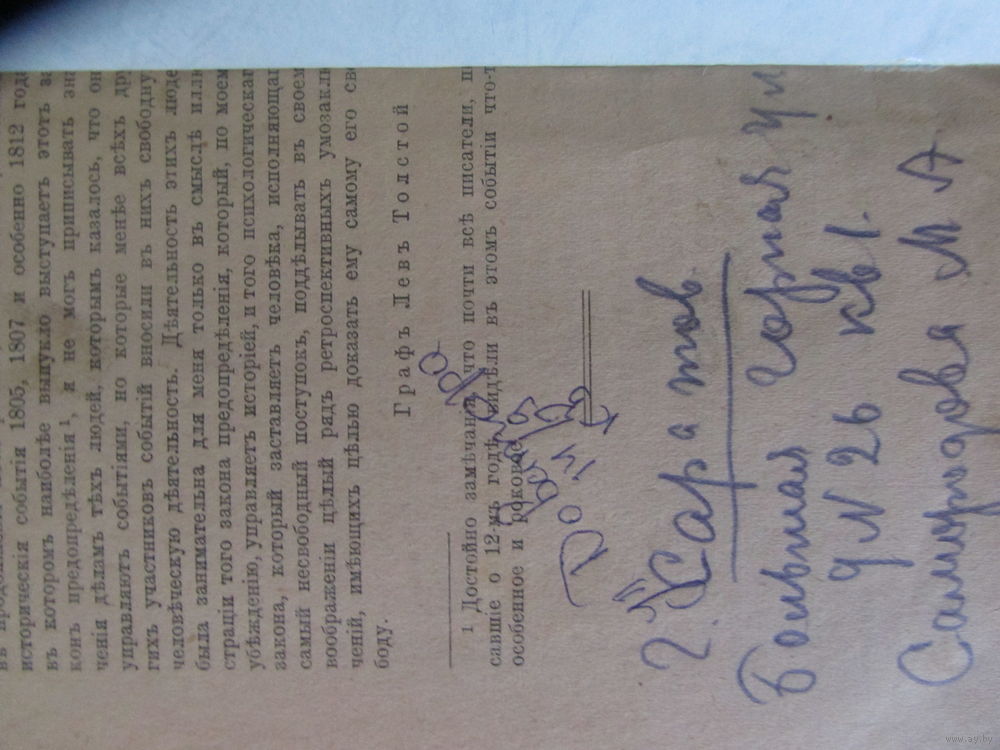 историческія событія 1805, 1807 и особенно 1812 года
въ которомъ наиболѣе выпукло выступаетъ этотъ за
конъ предопредѣленія¹, я не могъ приписывать зна
ченія дѣламъ тѣхъ людей, которымъ казалось, что он
управляютъ событіями, но которые менѣе всѣхъ дру
гихъ участниковъ событій вносили въ нихъ свободну
человѣческую дѣятельность. Дѣятельность этихъ люде
была занимательна для меня только въ смыслѣ иллю
страціи того закона предопредѣленія, который, по моем
убѣжденію, управляетъ исторіей, и того психологическаг
закона, который заставляетъ человѣка, исполняющаг
самый несвободный поступокъ, поддѣлывать въ своем
воображеніи цѣлый рядъ ретроспективныхъ умозаклю
ченій, имѣющихъ цѣлью доказать ему самому его сво
боду.
Графъ Левъ Толстой
¹ Достойно замѣчанія, что почти всѣ писатели, п
савшіе о 12-мъ годѣ, видѣли въ этомъ событіи что-т
особенное и роковое.
г. Саратов
Большая горная ул
д N 26 кв 1.
М А
www.ay.by